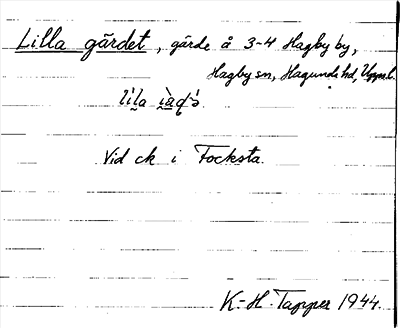 Lilla gärdet, gärde å 3-4 Hagby by,
Hagby sn, Hagunda hd, Uppsl.
Vid ck i Focksta.
K.-H. Tapper 1944.